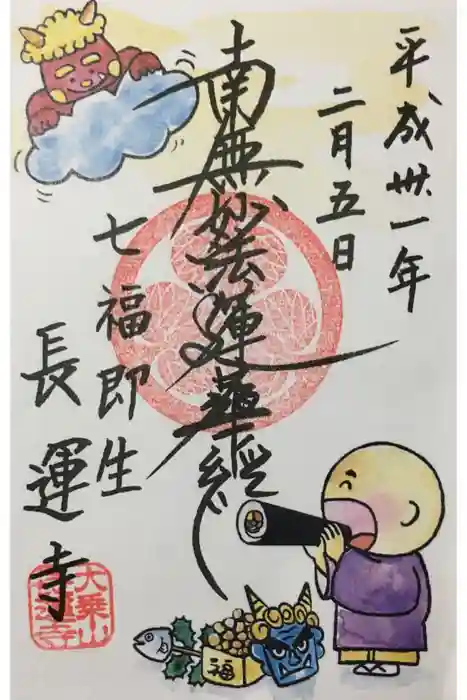 平成卅一年
二月五日
南無妙法蓮華経
七福即生
長運寺
大乗山
福